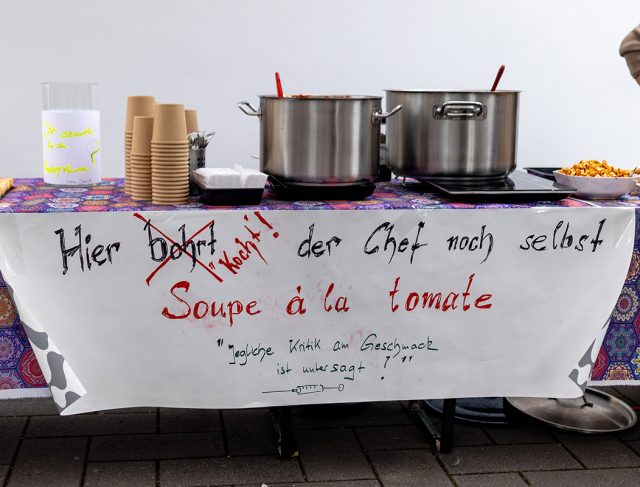 Hier bohrt "Kocht"! der Chef noch selbst
Soupe à la tomate
"Jegliche Kritik am Geschmack
ist untersagt!"